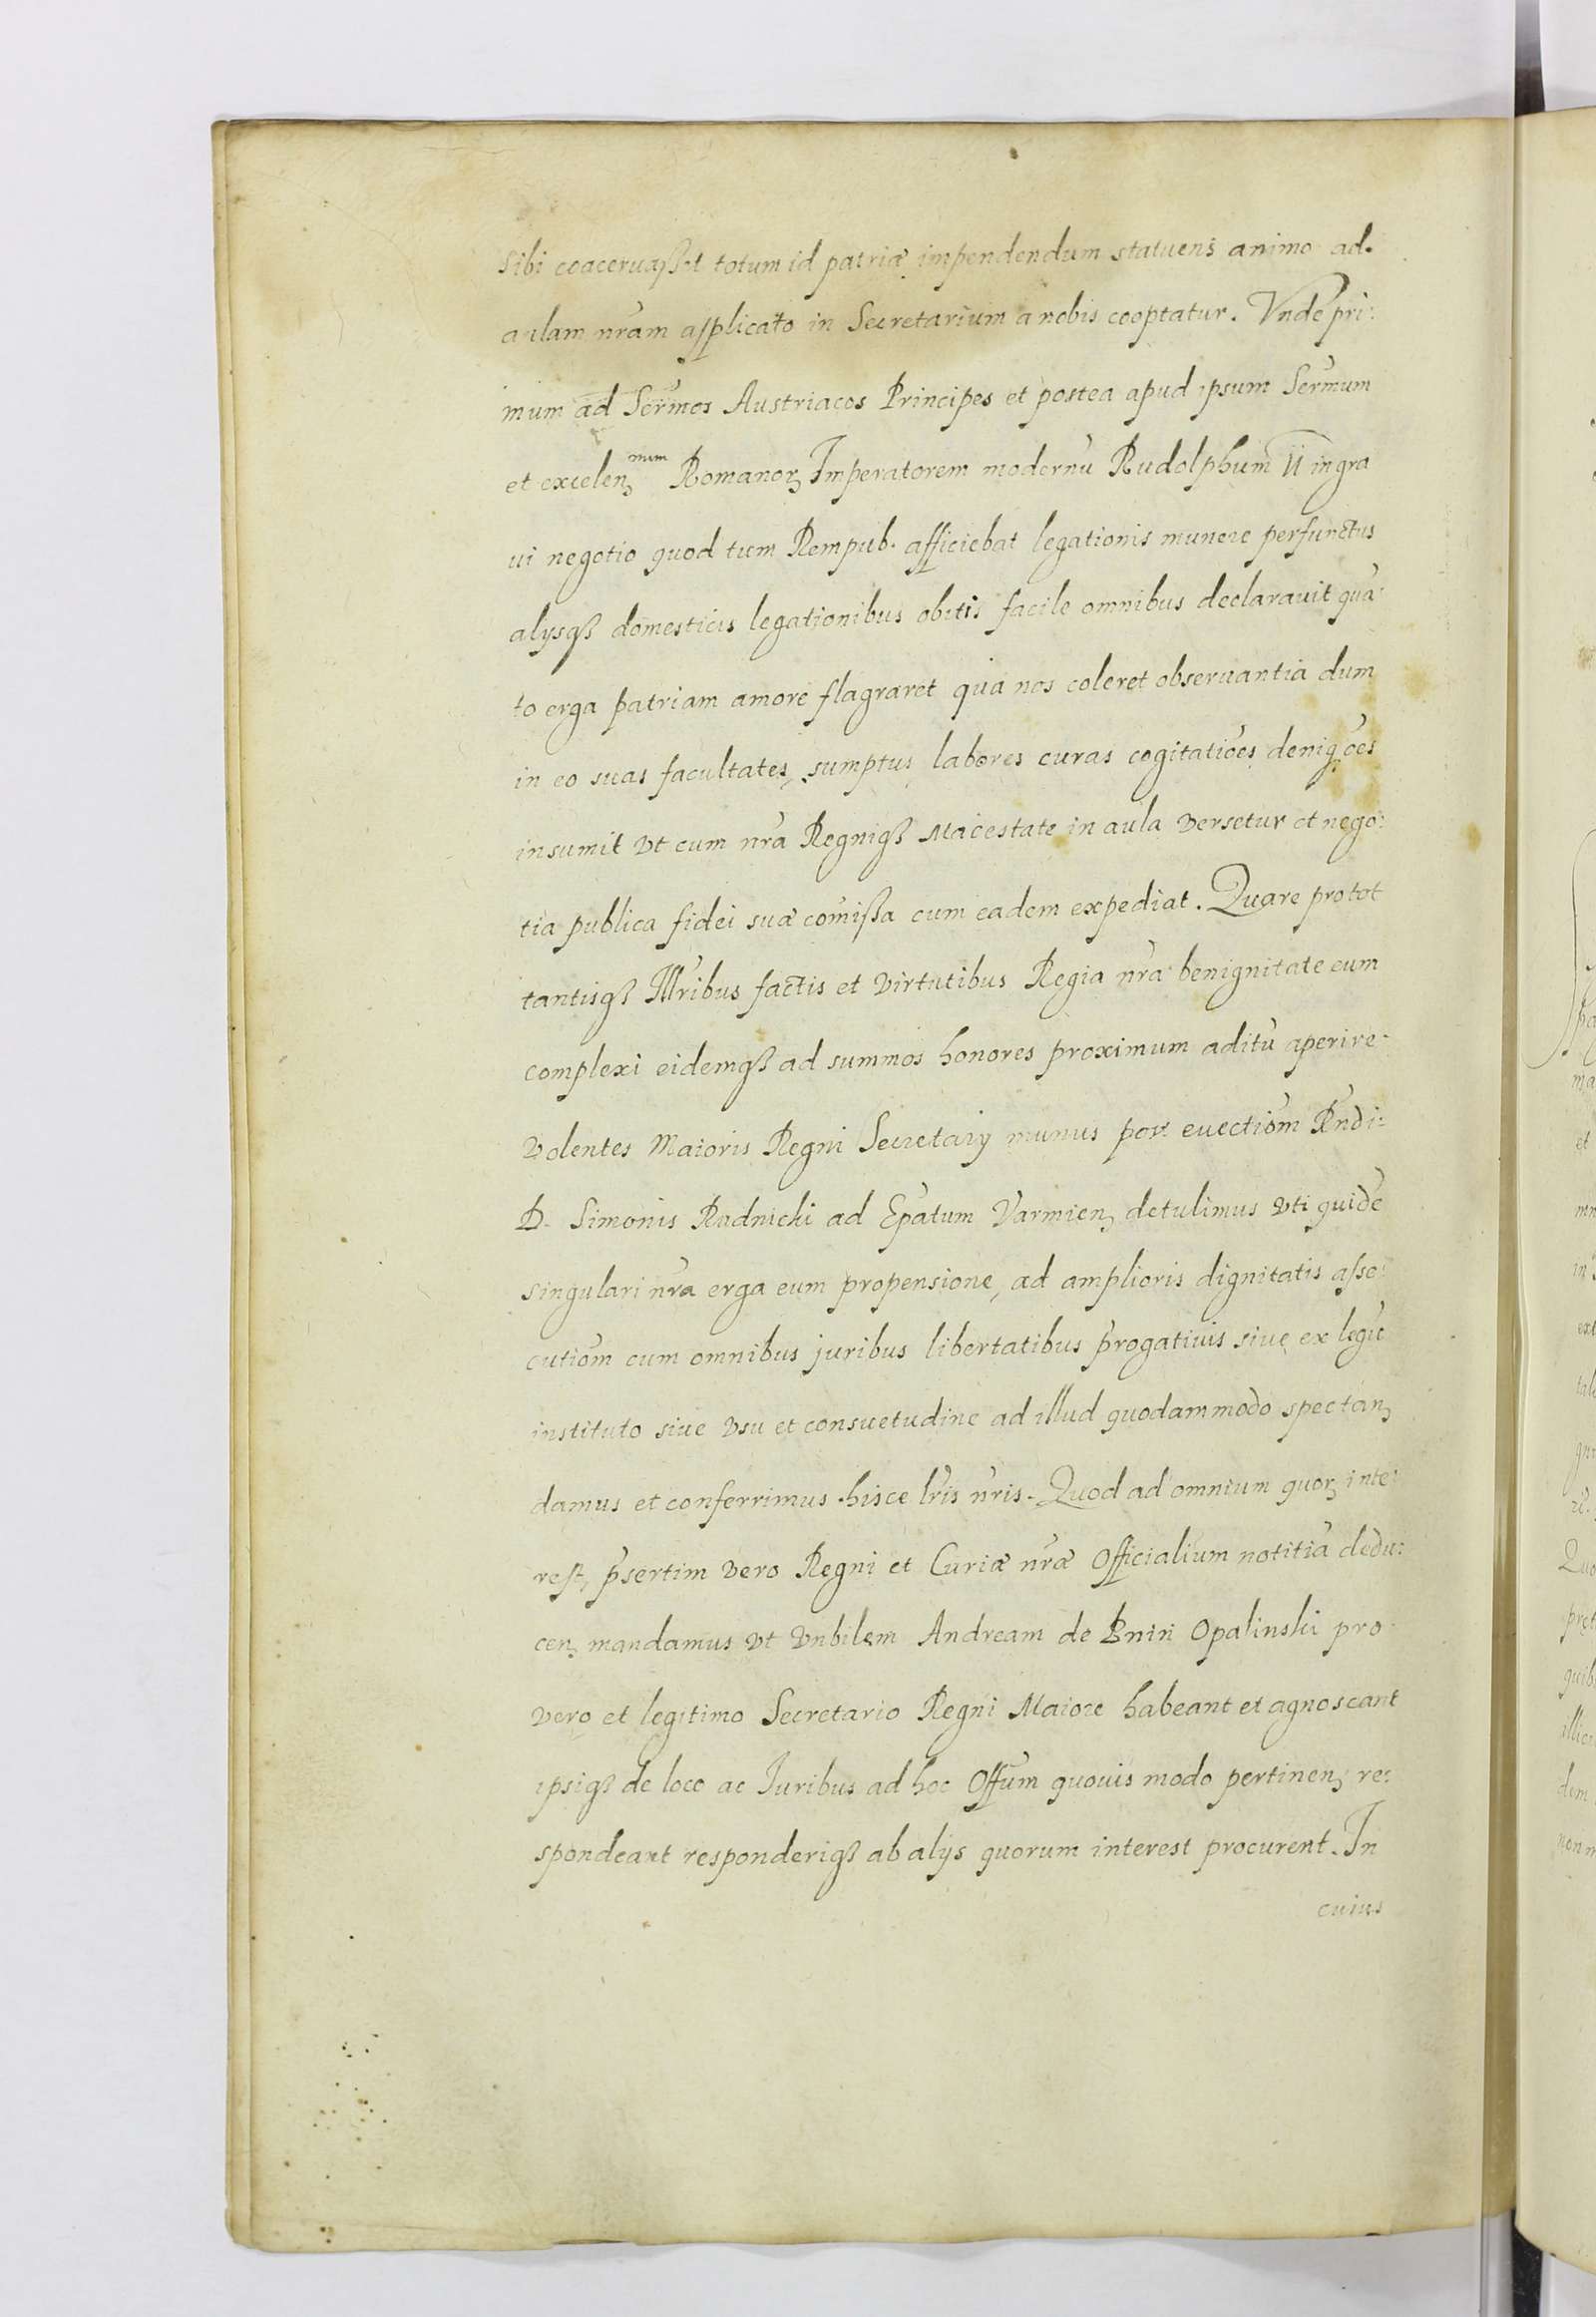 Sibi coaceruaßet totum id patriæ impendendum statuens animo ad
aulam nr̃am applicato in Secretarium a nobis cooptatur. Vnde pri:
mum ad Ser̃mos Austriacos Principes et postea apud ipsum Ser̃mum
et excelenꝫmum Romanorꝫ Imperatorem modernũ Rudolphum II in gra
ui negotio quod tum Rempub. afficiebat legationis munere perfunctus
alysqꝫ domesticis legationibus obitis facile omnibus declarauit quã
to erga patriam amore flagraret qua nos coleret obseruantia dum
in eo suas facultates, sumptus labores curas cogitatiões deniqꝫ oẽs
insumit vt cum nr̃a Regniqꝫ Maiestate in aula versetur et nego:
tia publica fidei suæ com̃ißa cum eadem expediat. Quare pro tot
tantisqꝫ Ill̃ribus factis et virtutibus Regia nr̃a benignitate eum
complexi eidemqꝫ ad summos honores proximum aditũ aperire
volentes Maioris Regni Secretarÿ munus per euectiõm Rñdi:
D. Simonis Rudnicki ad Ep̃atum Varmienꝫ detulimus vti quidẽ
singulari nr̃a erga eum propensione, ad amplioris dignitatis asse:
cutiõm cum omnibus juribus libertatibus p̃rogatiuis siue ex legũ
instituto siue vsu et consuetudine ad illud quodammodo spectanꝫ
damus et conferrimus hisce lr̃is nr̃is. Quod ad omnium quorꝫ inte:
rest, p̃sertim vero Regni et Curiæ nr̃æ Officialium notitiã dedu:
cenꝫ mandamus vt Vnbilem Andream de Bnin Opalinski pro
vero et legitimo Secretario Regni Maiore habeant et agnoscant
ipsiqꝫ de loco ac Iuribus ad hoc Off̃um quouis modo pertinenꝫ re:
spondeant responderiqꝫ ab alÿs quorum interest procurent. In
cuius